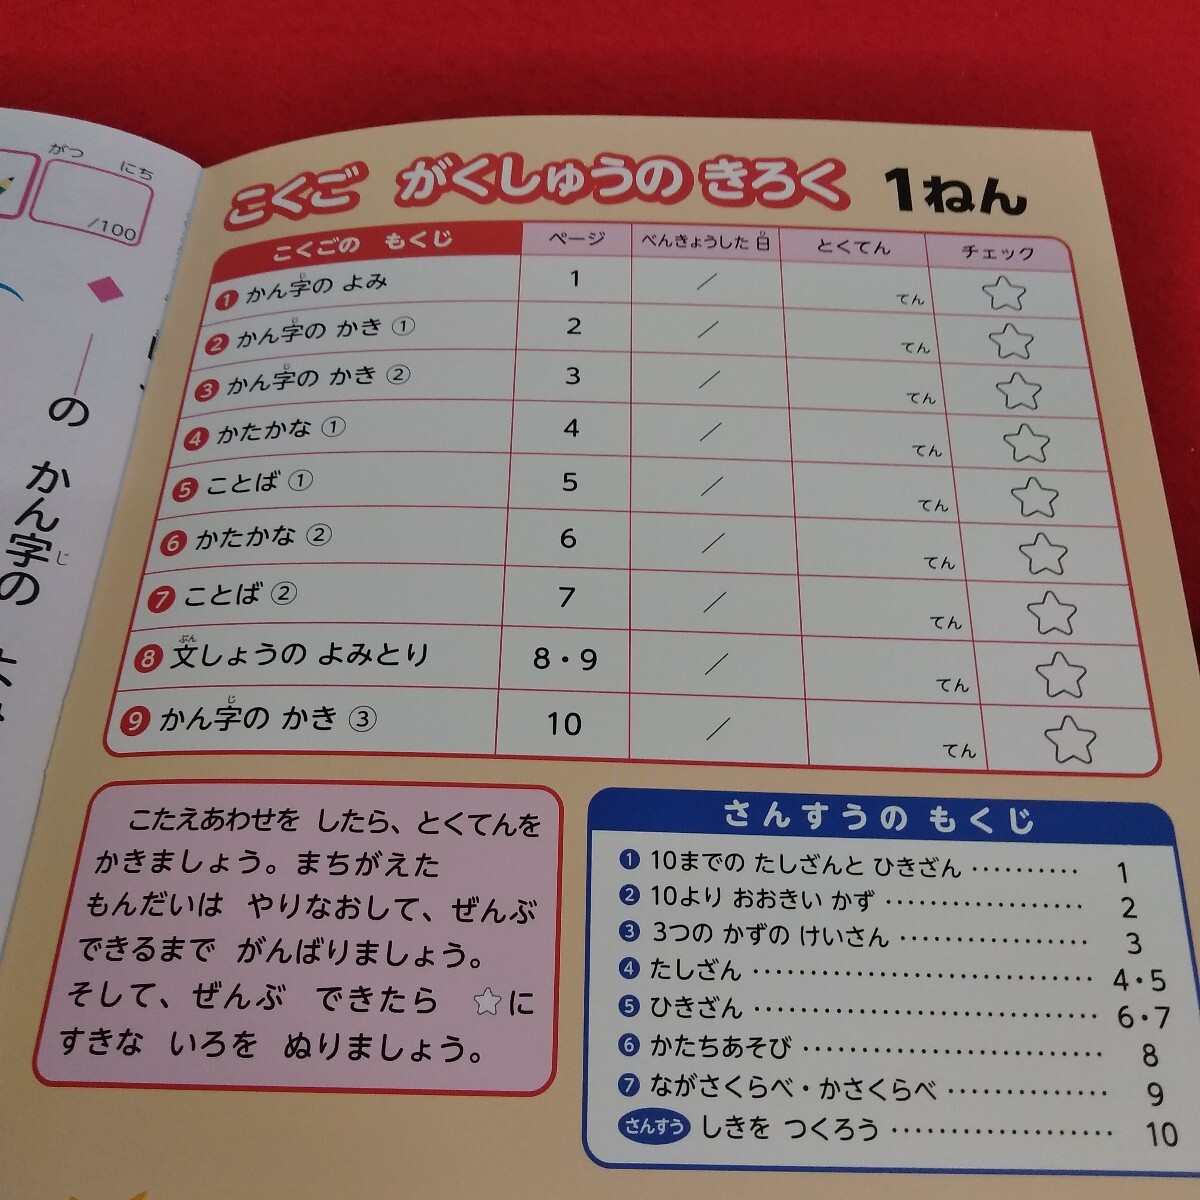 がつ にち
/100
の かん字の
じ
こくご がくしゅうの きろく 1ねん
こくごの もくじ ページ べんきょうした日 とくてん チェック
び
じ
❶ かん字の よみ 1 / てん ☆
じ
❷ かん字の かき ① 2 / てん ☆
じ
❸ かん字の かき ② 3 / てん ☆
❹ かたかな ① 4 / てん ☆
❺ ことば ① 5 / てん ☆
❻ かたかな ② 6 / てん ☆
❼ ことば ② 7 / てん ☆
ぶん
❽ 文しょうの よみとり 8・9 / てん ☆
じ
❾ かん字の かき ③ 10 / てん ☆
こたえあわせを したら、とくてんを
かきましょう。まちがえた
もんだいは やりなおして、ぜんぶ
できるまで がんばりましょう。
そして、ぜんぶ できたら ☆に
すきな いろを ぬりましょう。
さんすうの もくじ
❶ 10までの たしざんと ひきざん ………… 1
❷ 10より おおきい かず ………… 2
❸ 3つの かずの けいさん ………… 3
❹ たしざん ………… 4・5
❺ ひきざん ………… 6・7
❻ かたちあそび ………… 8
❼ ながさくらべ・かさくらべ ………… 9
さんすう しきを つくろう ………… 10